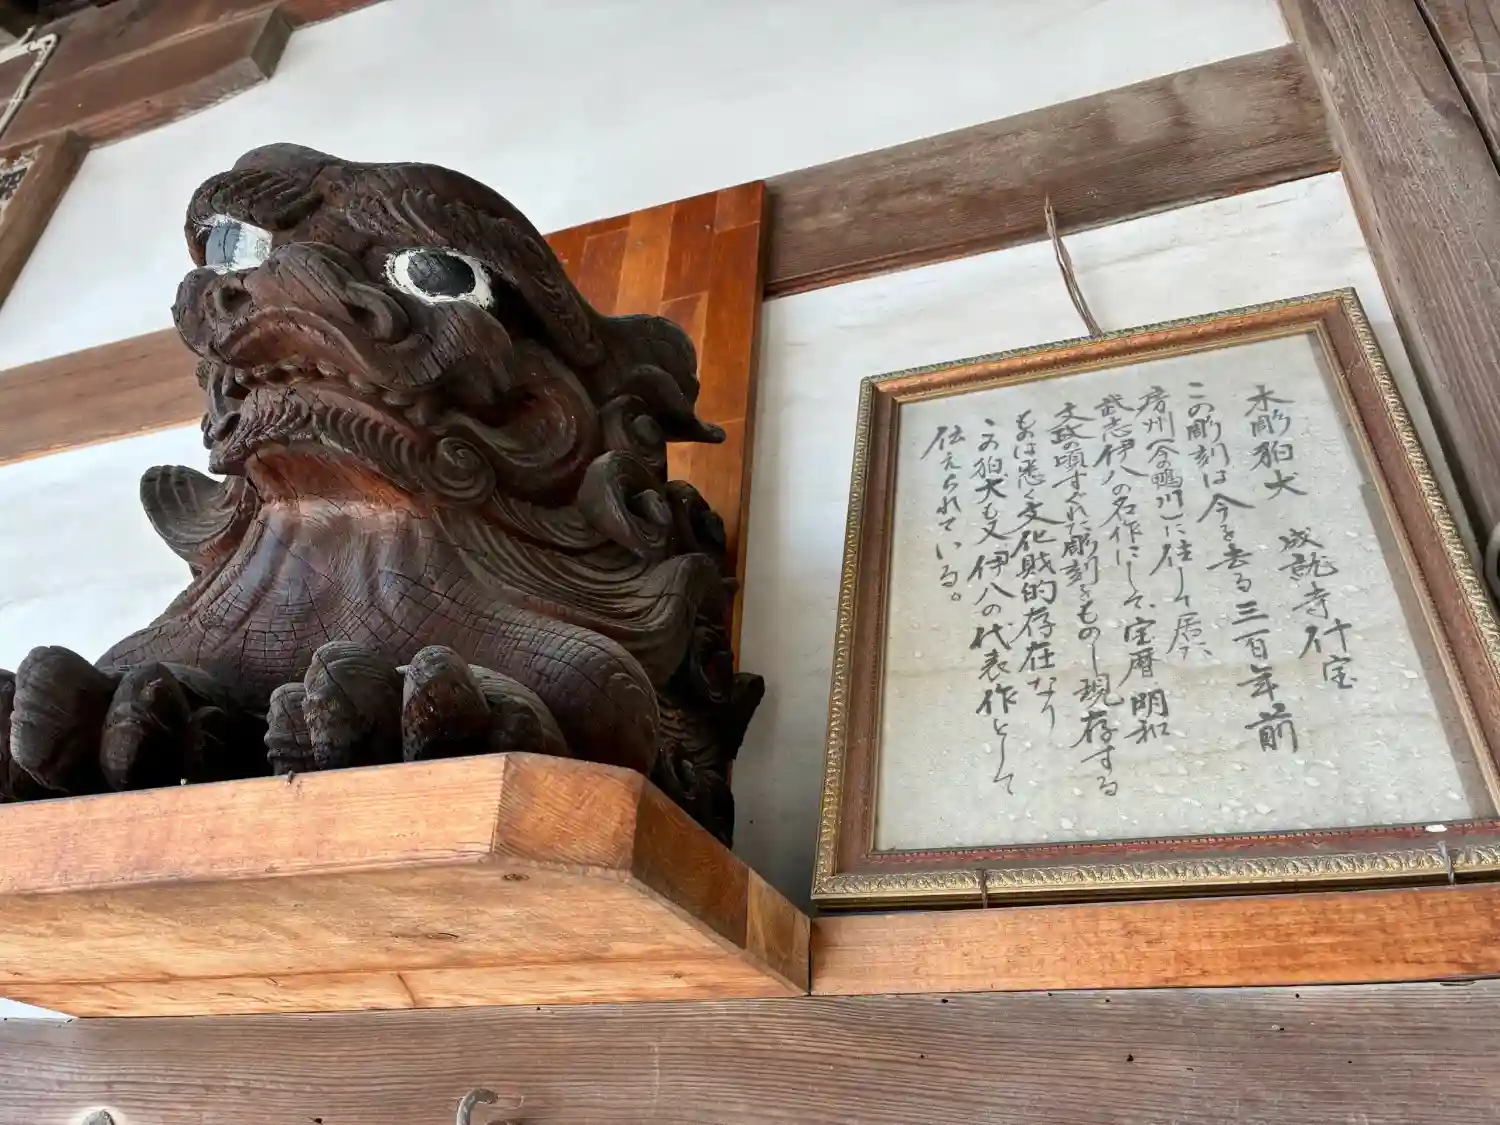 木彫狛犬　成就寺什宝
この彫刻は今を去る三百年前
房州(今の鴨川)に住して居た
武志伊八の名作にして、宝暦明和
文政の頃すぐれた彫刻をものし現存する
ものは悉く文化財的存在なり
この狛犬も又伊八の代表作として
伝えられている。